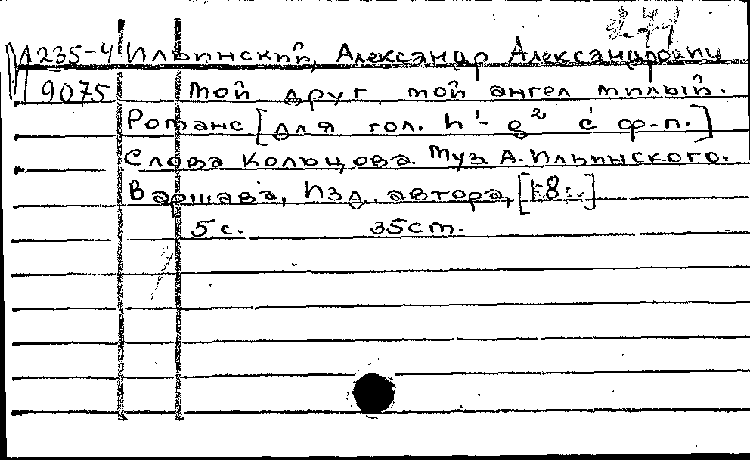 244
М235-4 Ильинский, Александр Александрович
9075 Мой друг, мой ангел милый.
Романс [для гол. h¹- g² с ф-п.]
Слова Кольцова. Муз. А. Ильинского.
Варшава, Изд. автора,
5 с. 35 cm.